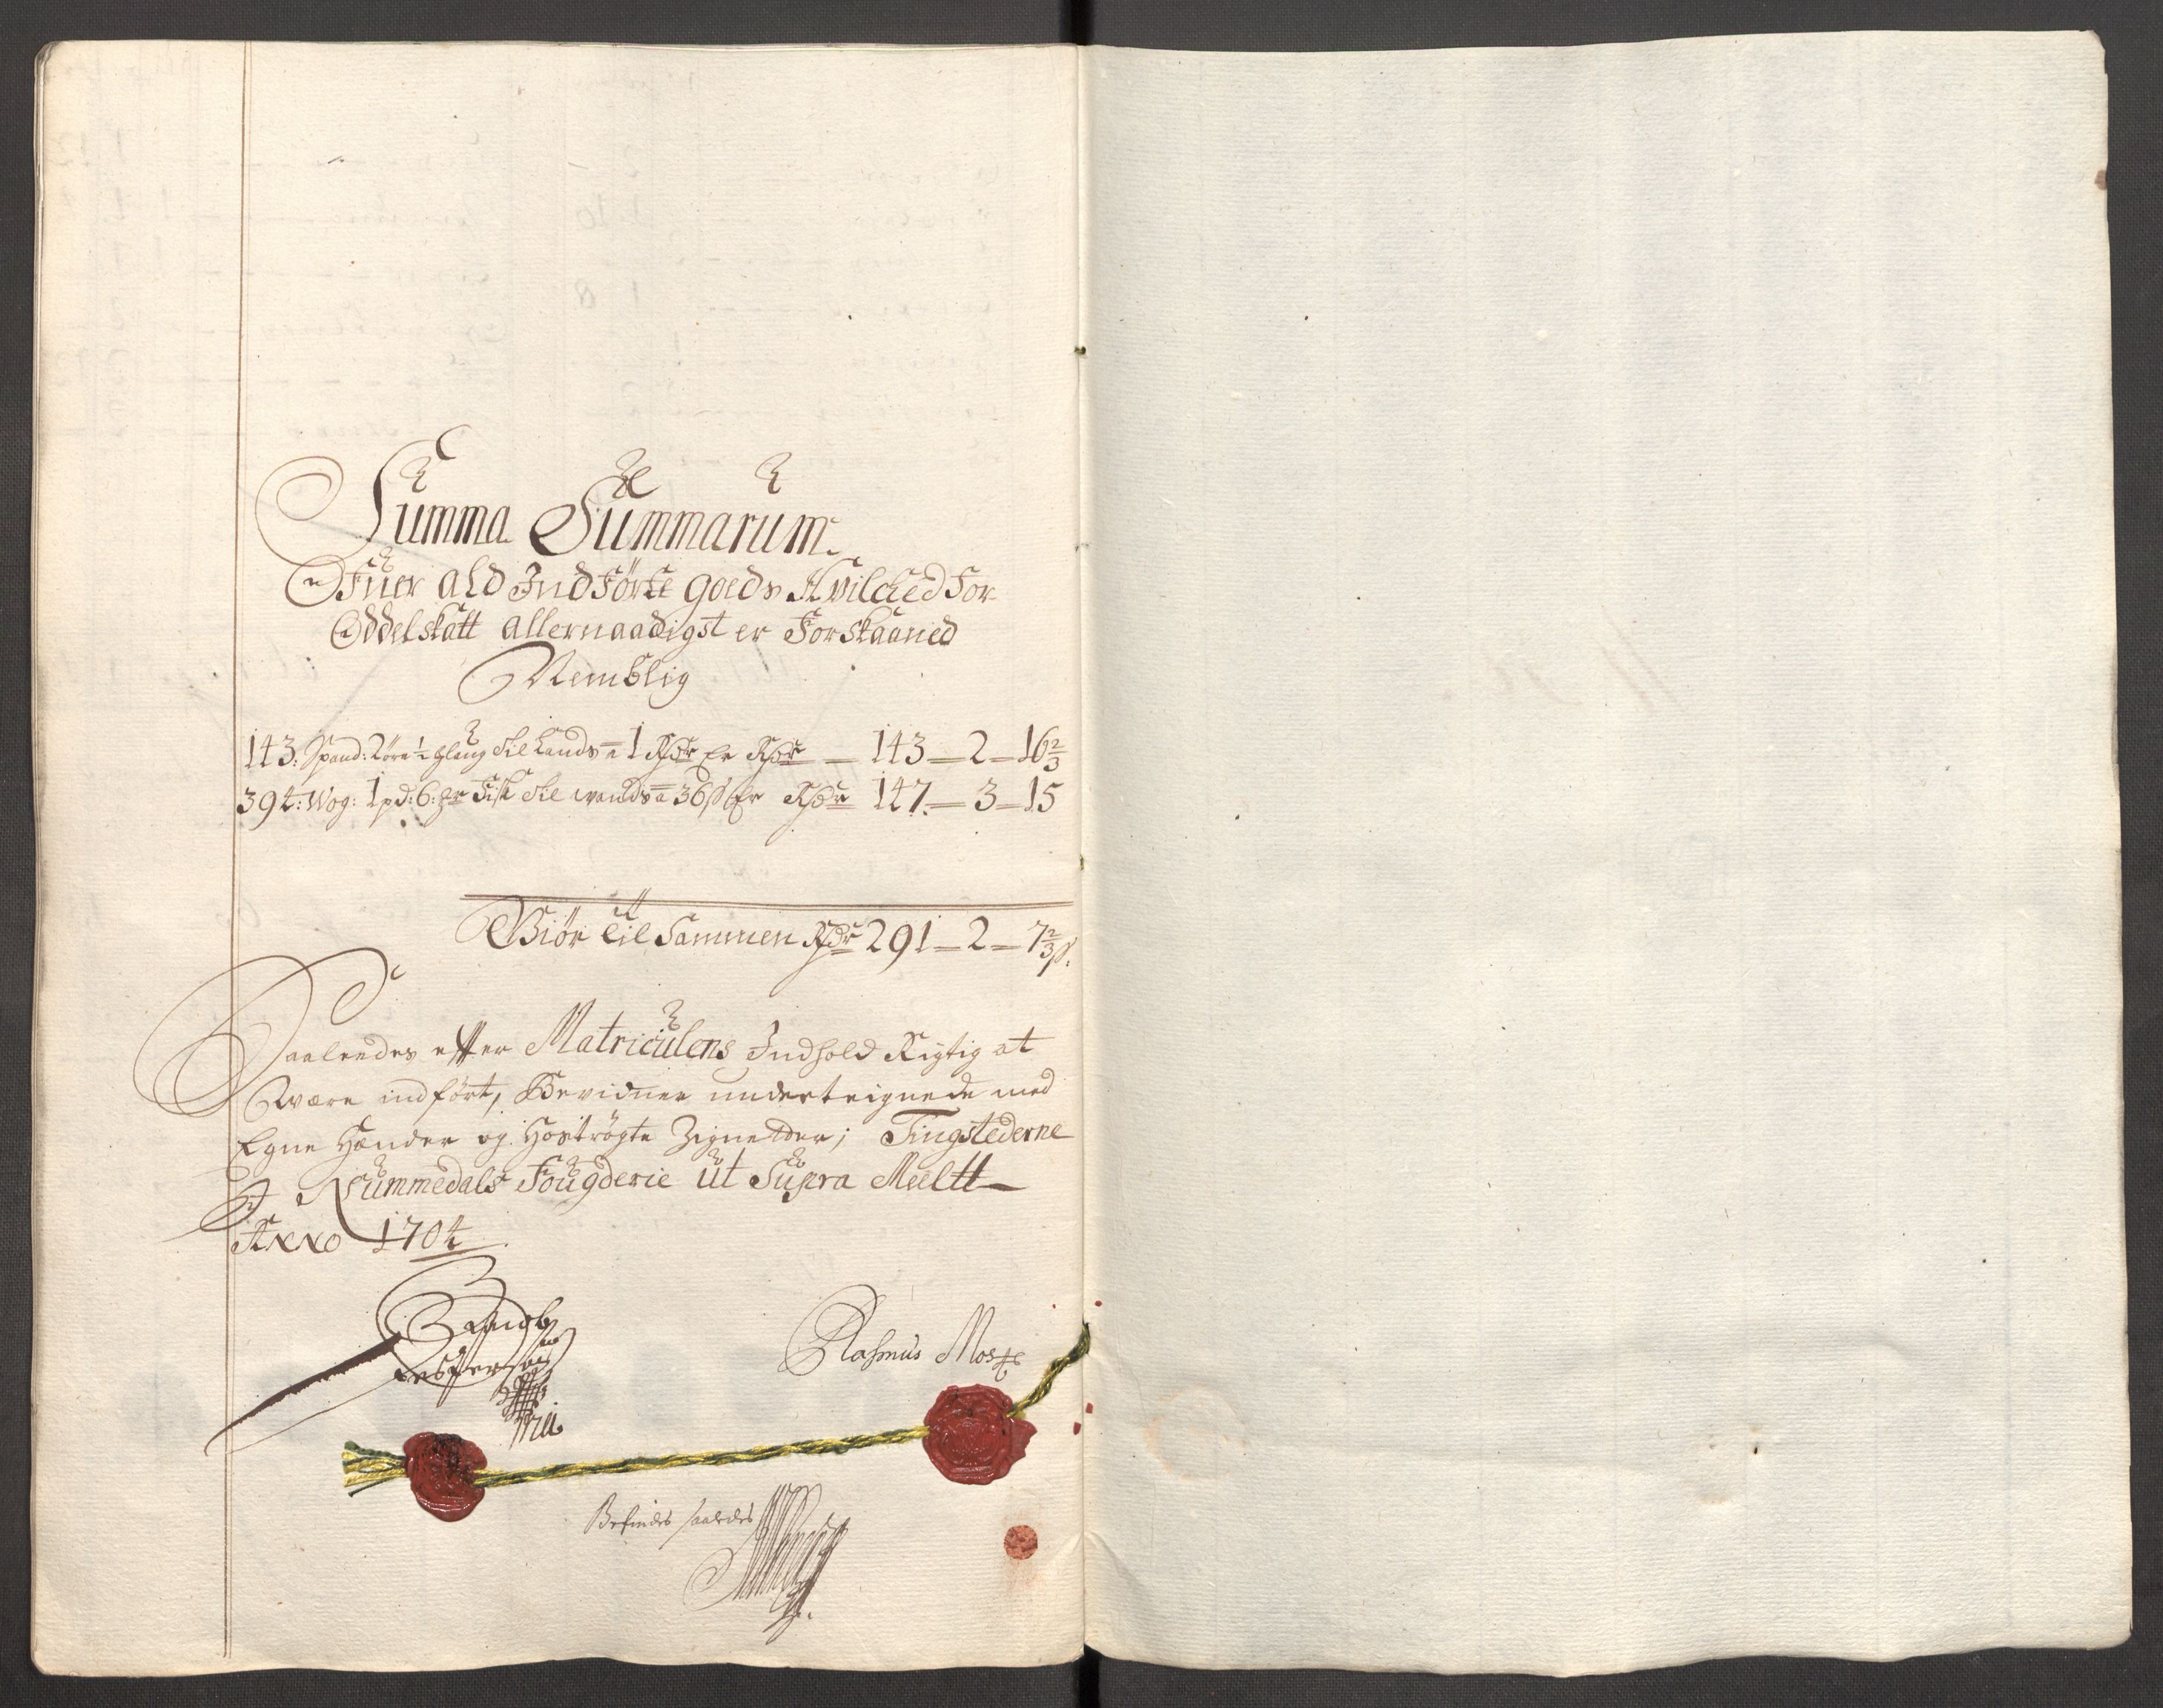 Summa Summarum
Ofuer ald Indførte goeds Hvilched for
Oddelskatt allernaadigst er Forskaaned
Nemblig
143: Spand: 2 øre ½ slaug til Lands a 1 Rdr Er Rdr — 143 — 2 — 16⅔
394: Wog: 1 pd: 6: Fisk til wands a 36 ß Er Rdr 147 — 3 — 15
Giør til Sammen Rdr 291 — 2 — 7⅔ ß.
Saaledes effter Matriculens Indhold Rigtig at
være indført, Bevidner underteignede med
Egne Hænder og Hostrøgte Zignetter; Tingstederne
I Nummedals Fougderie ut Supra Meltt
Anno 1704
Rasmus Mos
Befindes saaledes